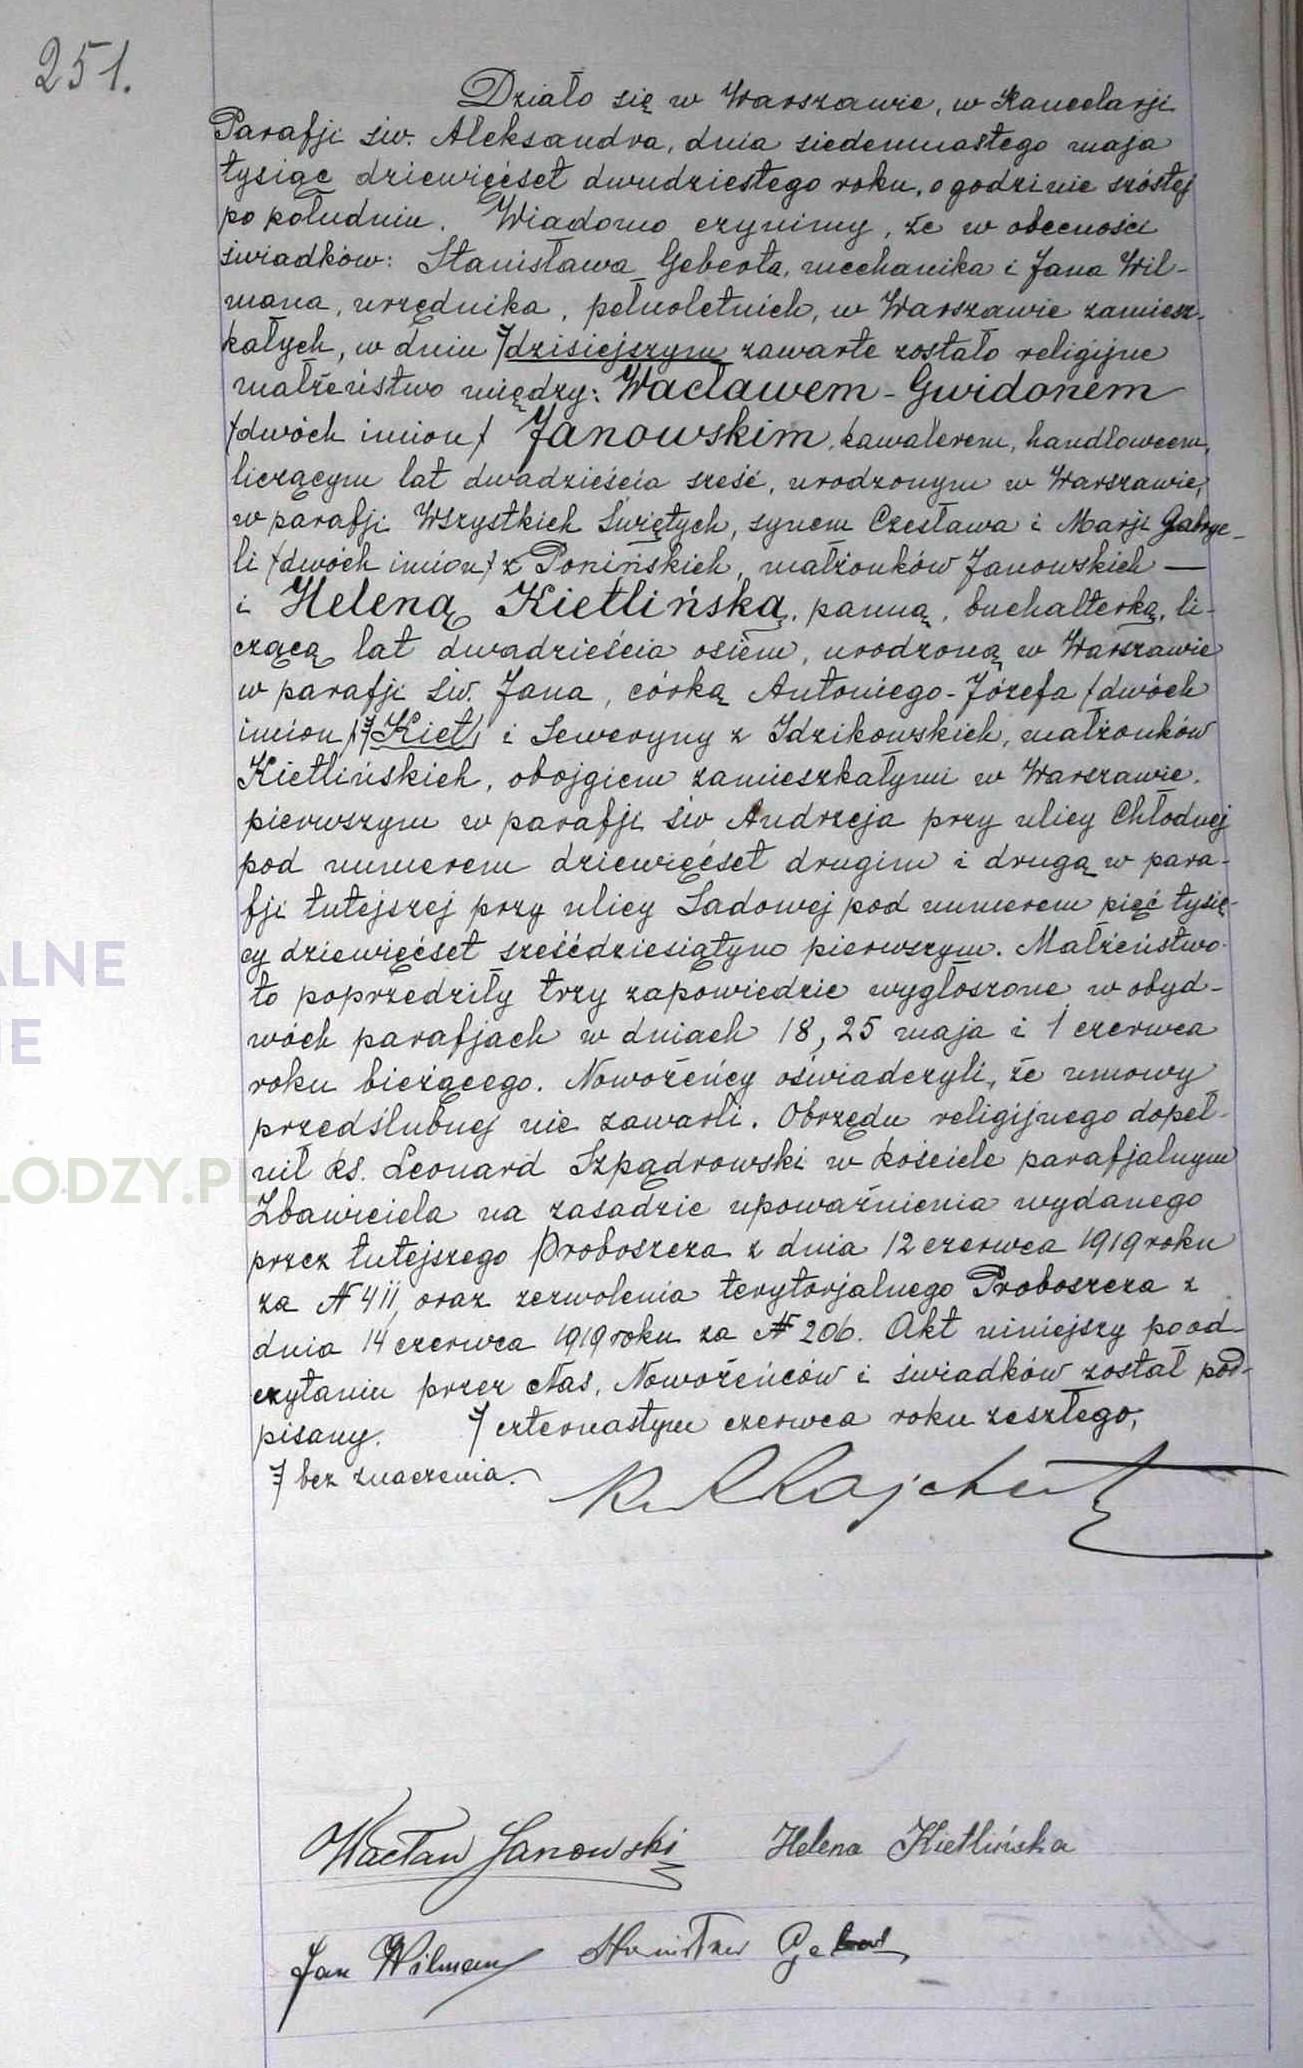 251.
Działo się w Warszawie, w Kancelarji
Parafji św. Aleksandra, dnia siedemnastego maja
tysiąc dziewięćset dwudziestego roku, o godzinie szóstej
po południu. Wiadomo czynimy, że w obecności
świadków: Stanisława Geberta, mechanika i Jana Wil-
mana, urzędnika, pełnoletnich, w Warszawie zamiesz-
kałych, w dniu dzisiejszym zawarte zostało religijne
małżeństwo między: Wacławem-Gwidonem
/dwóch imion/ Janowskim, kawalerem, handlowcem,
liczącym lat dwadzieścia sześć, urodzonym w Warszawie,
w parafji Wszystkich Świętych, synem Czesława i Marji Gabrye-
li /dwóch imion/ z Ponińskich, małżonków Janowskich —
i Heleną Kietlińską, panną, buchalterką, li-
czącą lat dwadzieścia osiem, urodzoną w Warszawie
w parafji św. Jana, córką Antoniego-Józefa /dwóch
imion/ Kiet i Seweryny z Idzikowskich, małżonków
Kietlińskich, obojgiem zamieszkałymi w Warszawie,
pierwszym w parafji św Andrzeja przy ulicy Chłodnej
pod numerem dziewięćset drugim i drugą w para-
fji tutejszej przy ulicy Sadowej pod numerem pięć tysię-
cy dziewięćset sześćdziesiątym pierwszym. Małżeństwo
to poprzedziły trzy zapowiedzie wygłoszone w obyd-
wóch parafjach w dniach 18, 25 maja i 1 czerwca
roku bieżącego. Nowożeńcy oświadczyli, że umowy
przedślubnej nie zawarli. Obrzędu religijnego dopeł-
nił ks. Leonard Szpądrowski w kościele parafjalnym
Zbawiciela na zasadzie upoważnienia wydanego
przez tutejszego Proboszcza z dnia 12 czerwca 1919 roku
za N 411, oraz zezwolenia terytorjalnego Proboszcza z
dnia 14 czerwca 1919 roku za N 206. Akt niniejszy po od-
czytaniu przez Nas, Nowożeńców i świadków został pod-
pisany. czternastym czerwca roku zeszłego;
bez znaczenia.
Wacław Janowski Helena Kietlińska
Jan Wilman Stanisław
ALNE
IE
LODZY.PL